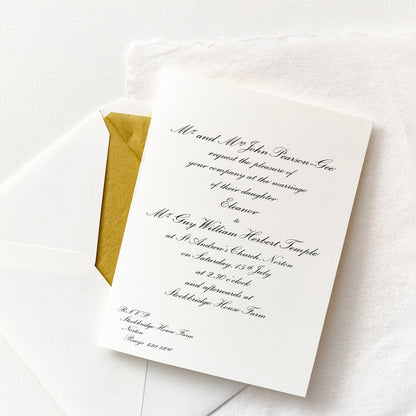 Mr and Mrs John Pearson-Gee
request the pleasure of
your company at the marriage
of their daughter
Eleanor
to
Mr Guy William Herbert Temple
at St Andrew's Church, Norton
on Saturday, 15th July
at 2.30 o'clock
and afterwards at
Stockbridge House Farm
R.S.V.P
Stockbridge House Farm
Norton